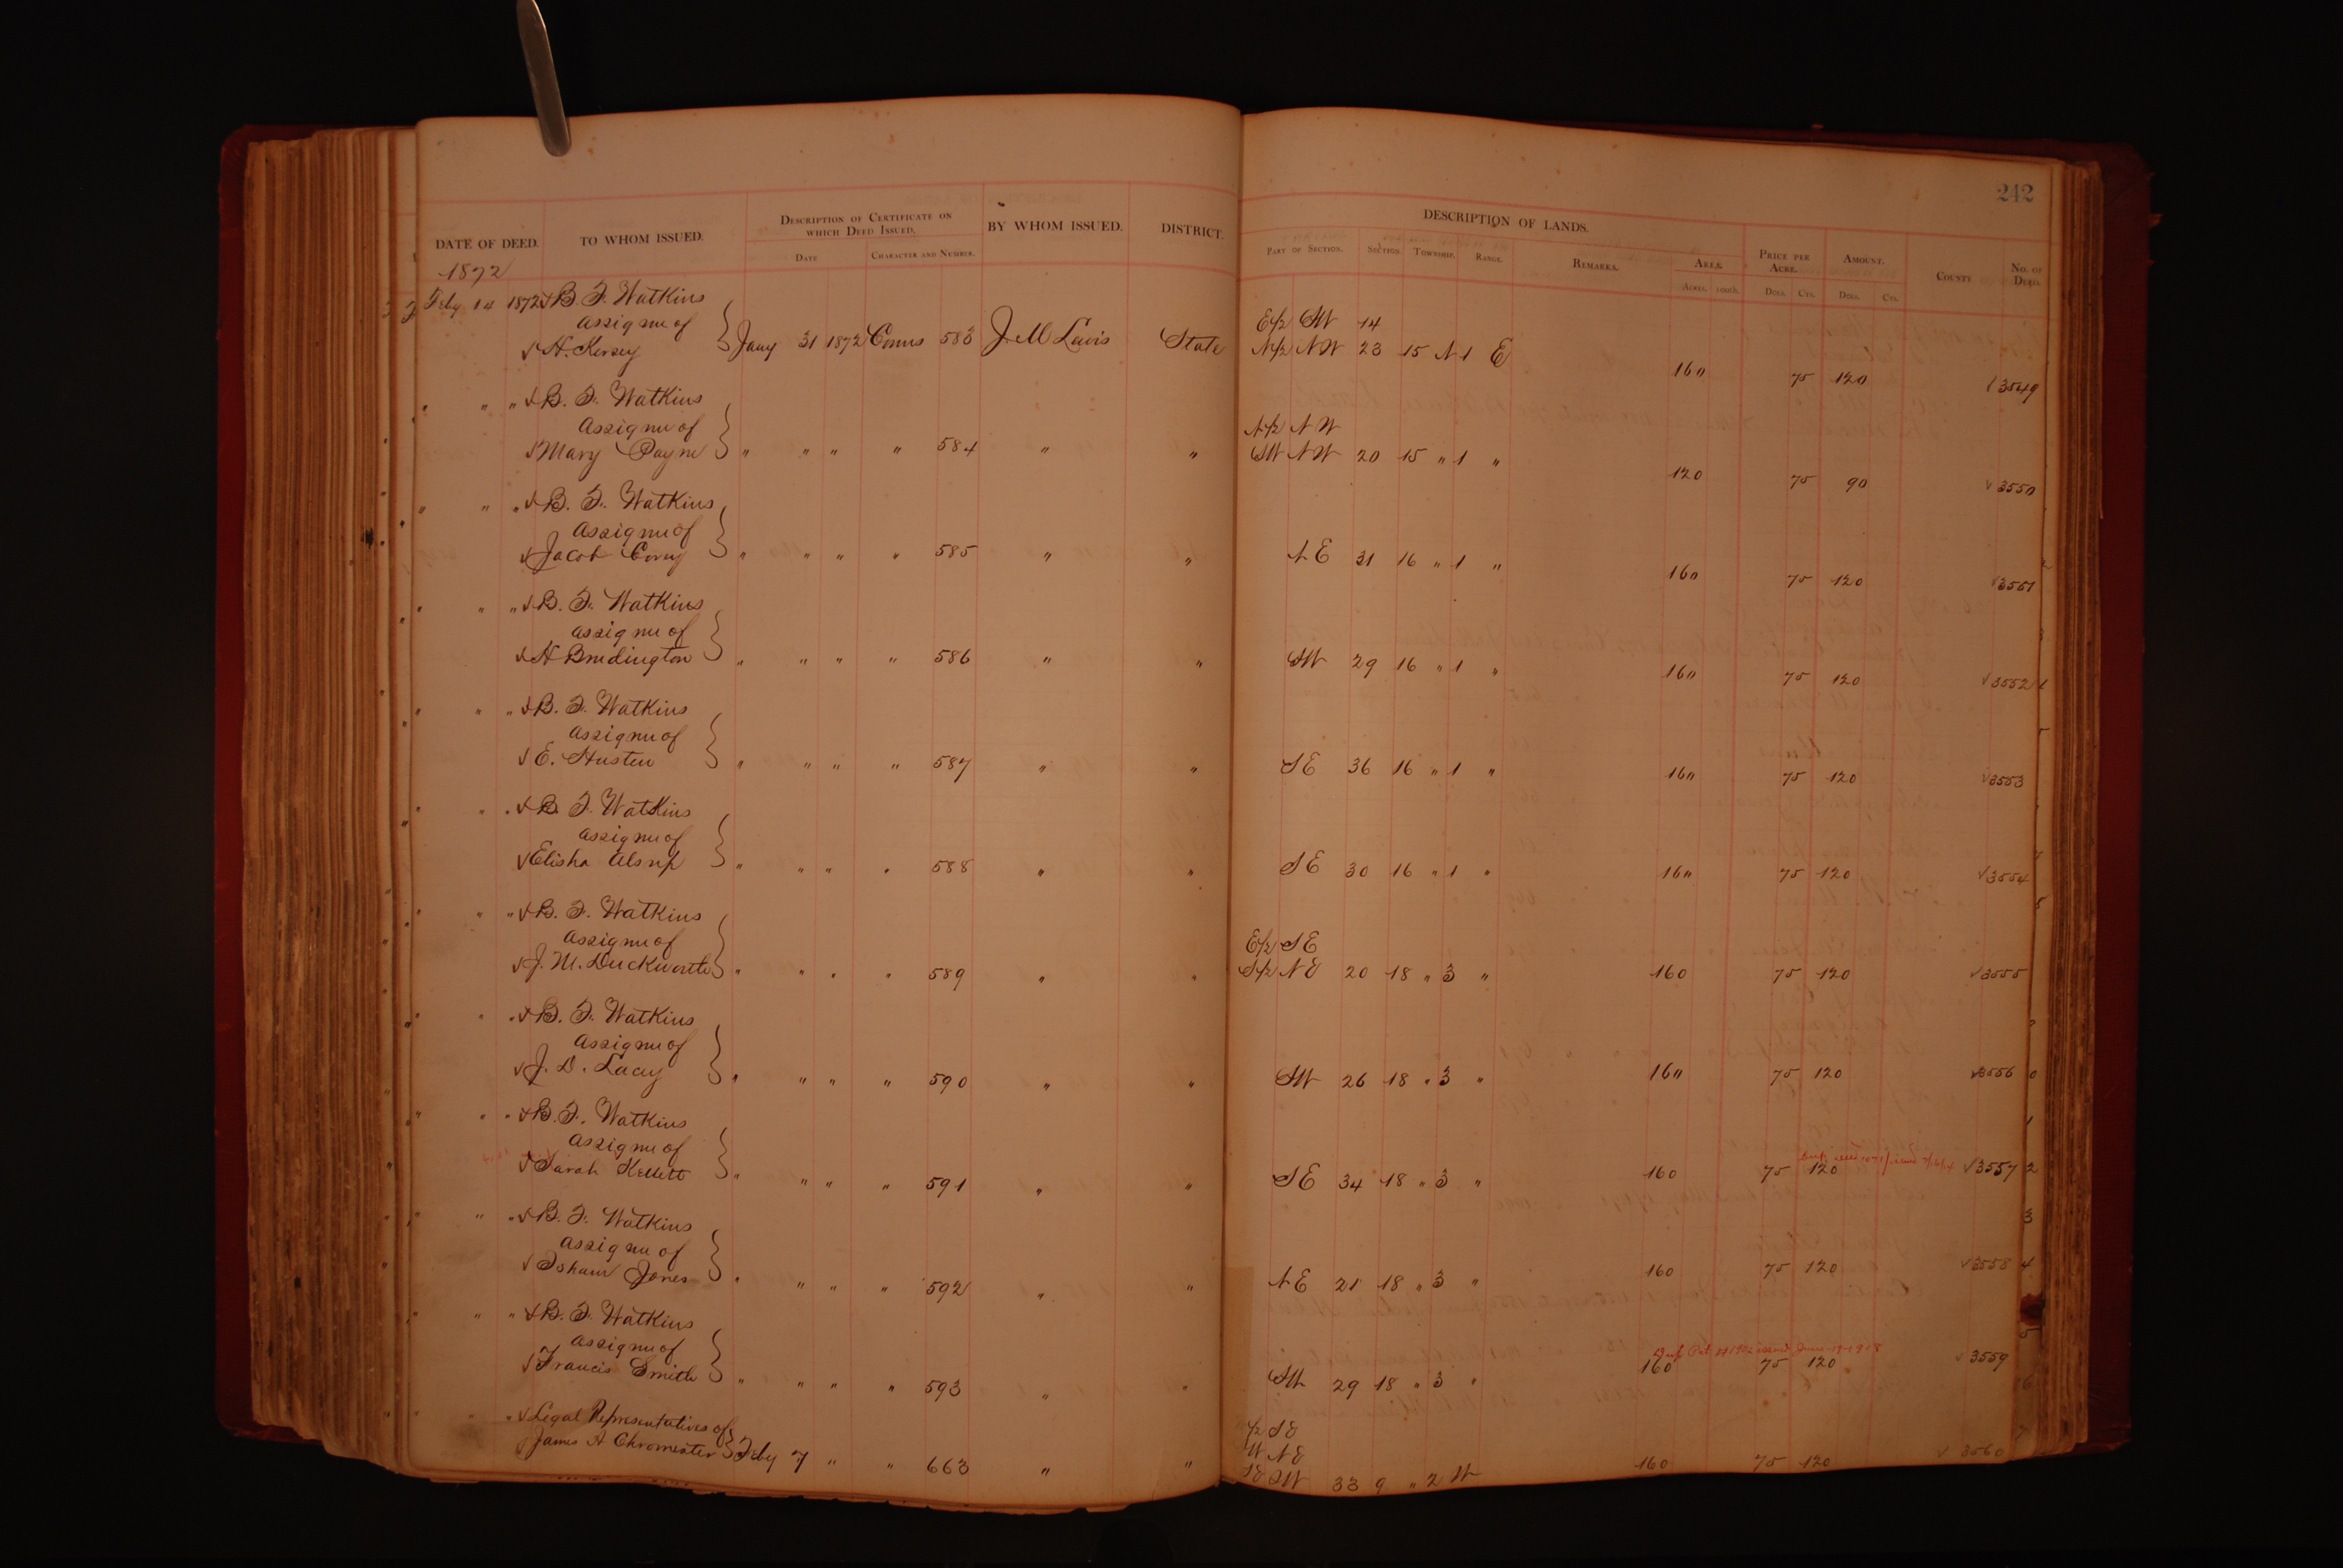 242
DATE OF DEED. TO WHOM ISSUED. DESCRIPTION OF CERTIFICATE ON WHICH DEED ISSUED. BY WHOM ISSUED. DISTRICT. DESCRIPTION OF LANDS.
DATE CHARACTER AND NUMBER. PART OF SECTION. SECTION. TOWNSHIP. RANGE. REMARKS. AREA. PRICE PER ACRE. AMOUNT. COUNTY NO. OF DEED.
ACRES. 100TH. DOLS. CTS. DOLS. CTS.
1872
Feby 14 1872 B. F. Watkins
assignee of E/2 SW 14
H. Kersey } Jany 31 1872 Comus 583 J M Lewis State N/2 NW 23 15 N 1 E 160 75 120 3549
" " " B. F. Watkins
assignee of N/2 NW
Mary Payne } " " " " 584 " " SW NW 20 15 " 1 " 120 75 90 3550
" " " B. F. Watkins
assignee of
Jacob } " " " " 585 " " NE 31 16 " 1 " 160 75 120 3551
" " " B. F. Watkins
assignee of
H } " " " " 586 " " SW 29 16 " 1 " 160 75 120 3552
" " " B. F. Watkins
assignee of
E. Husten } " " " " 587 " " SE 36 16 " 1 " 160 75 120 3553
" " " B. F. Watkins
assignee of
Elisha Alsup } " " " " 588 " " SE 30 16 " 1 " 160 75 120 3554
" " " B. F. Watkins
assignee of E/2 SE
J. M. Duckworth } " " " " 589 " " S/2 NE 20 18 " 3 " 160 75 120 3555
" " " B. F. Watkins
assignee of
J. D. Lacey } " " " " 590 " " SW 26 18 " 3 " 160 75 120 3556
" " " B. F. Watkins
assignee of
Sarah Kellett } " " " " 591 " " SE 34 18 " 3 " 160 75 120 3557
" " " B. F. Watkins
assignee of
Isham Jones } " " " " 592 " " NE 21 18 " 3 " 160 75 120 3558
" " " B. F. Watkins
assignee of
Francis Smith } " " " " 593 " " SW 29 18 " 3 " 160 75 120 3559
" " Legal Representatives of /2 SE
James H Chromester } Feby 7 " " 663 " " W NE
SE SW 33 9 " 2 W 160 75 120 3560